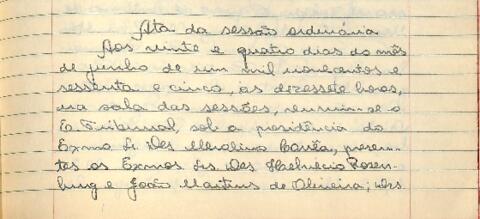 Ata da sessão ordinária
Aos vinte e quatro dias do mês
de junho de um mil novecentos e
sessenta e cinco, às dezessete horas,
na sala das sessões, reuniu-se o
E. Tribunal, sob a presidência do
Exmo Sr. Des Marolino Corrêa, presen-
tes os Exmos Srs. Des Helvécio Rosen-
burg e João Martins de Oliveira;